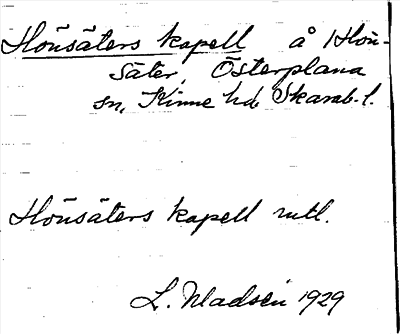 Hönsäters kapell å Hön-
säter, Österplana
sn, Kinne hd, Skarab. l.
Hönsäters kapell rutl.
L. Madsén 1929